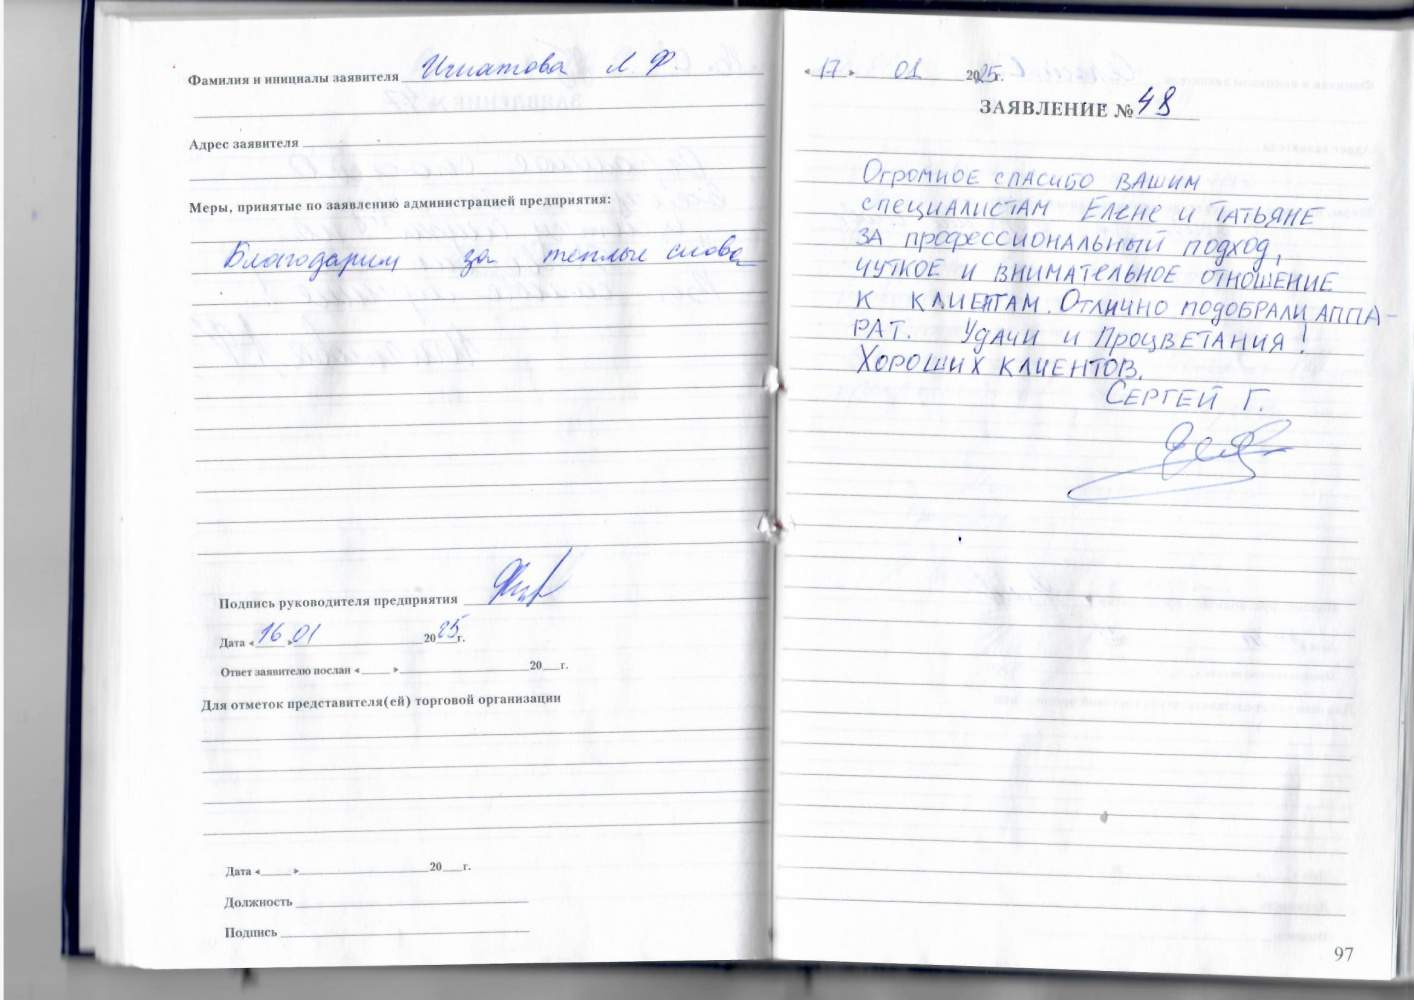 Фамилия и инициалы заявителя Игнатова Л. Ф.
Адрес заявителя
Меры, принятые по заявлению администрацией предприятия:
Благодарим за теплые слова
Подпись руководителя предприятия
Дата «16» 01 2025г.
Ответ заявителю послан «___» ___ 20__г.
Для отметок представителя(ей) торговой организации
Дата «___» ___ 20__г.
Должность
Подпись
«17» 01 2025г.
ЗАЯВЛЕНИЕ № 48
Огромное спасибо вашим
специалистам Елене и Татьяне
за профессиональный подход,
чуткое и внимательное отношение
к клиентам. Отлично подобрали аппа-
рат. Удачи и Процветания!
Хороших клиентов.
Сергей Г.
97